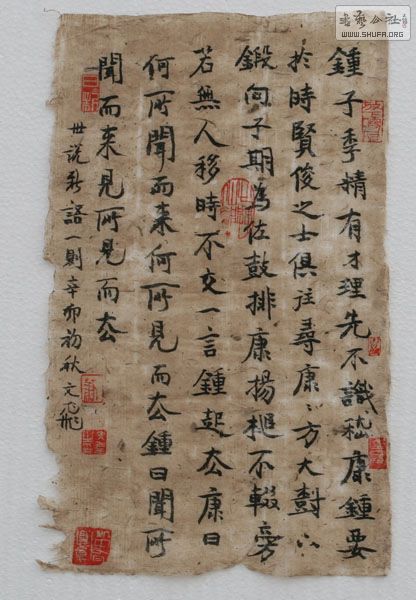 鍾子季精有才理先不識嵇康鍾要
於時賢俊之士俱往尋康〻方大樹下
鍛向子期為佐鼓排康揚槌不輟旁
若無人移時不交一言鍾起去康曰
何所聞而来何所見而去鍾曰聞所
聞而来見所見而去
世說新語一則辛卯初秋文飛
書藝公社
WWW.SHUFA.ORG